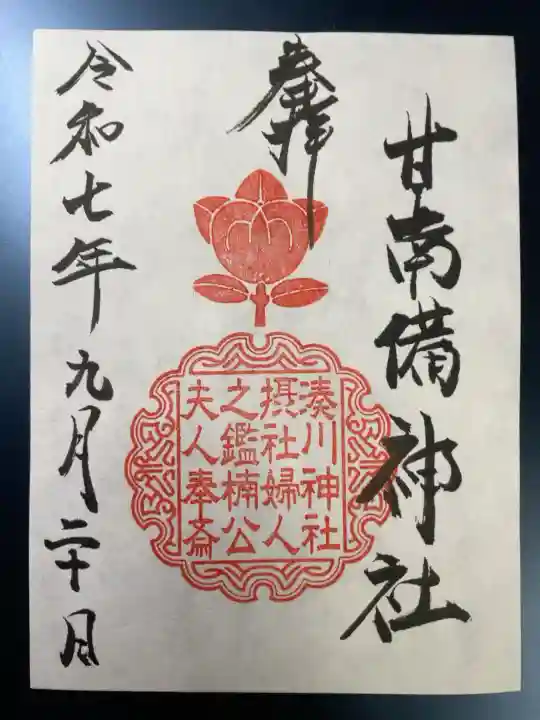 甘南備神社
奉拝
湊川神社
摂社婦人
之鑑楠公
夫人奉斎
令和七年九月二十日